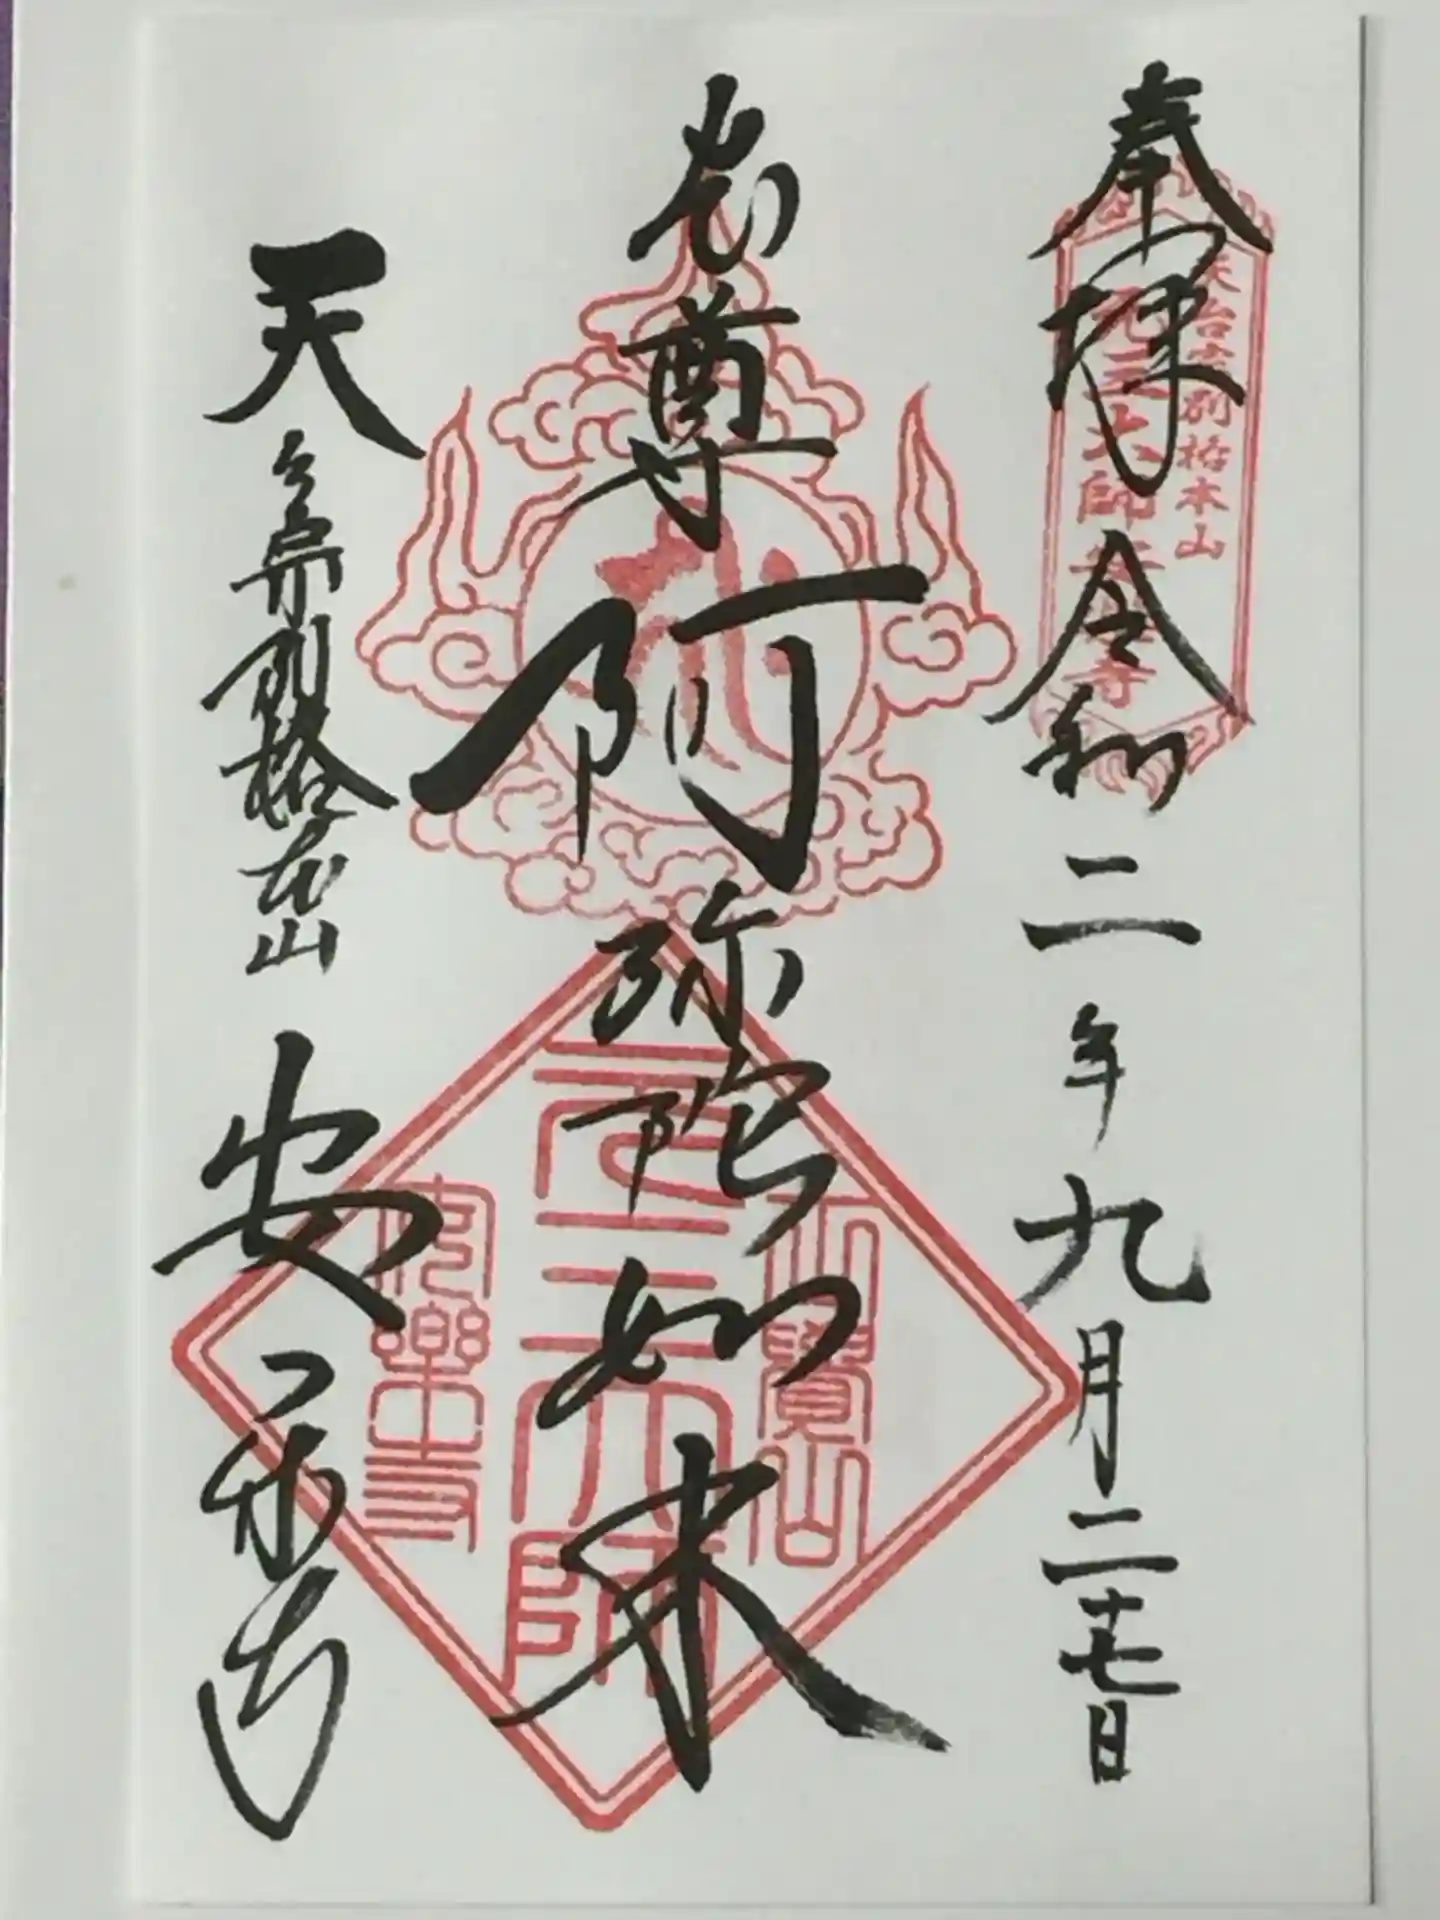 奉拝
令和二年九月二十七日
天台宗別格本山
元三大師 安楽寺
本尊
阿弥陀如来
元三大師
安樂寺
天台宗別格本山
安楽寺